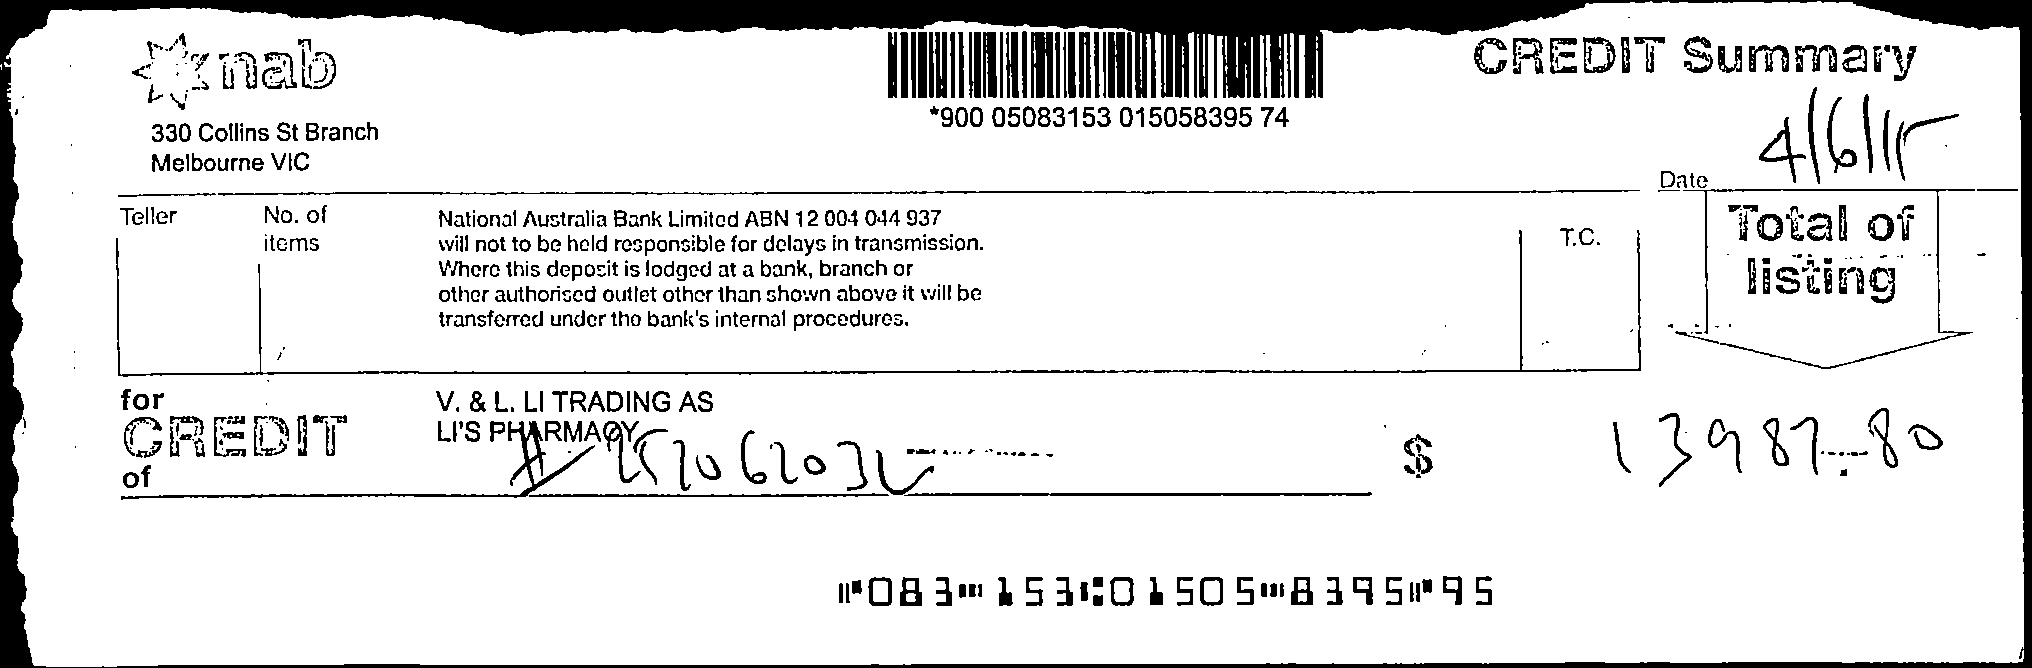 nab
CREDIT Summary
*900 05083153 015058395 74
330 Collins St Branch
Melbourne VIC
4/6/15
Date
Teller
No. of
items
National Australia Bank Limited ABN 12 004 044 937
will not to be held responsible for delays in transmission.
Where this deposit is lodged at a bank, branch or
other authorised outlet other than shown above it will be
transferred under the bank's internal procedures.
T.C.
Total of
listing
for
CREDIT
of
V. & L. LI TRADING AS
LI'S PHARMACY
$ 13987.80
083 153 01505 8395 95